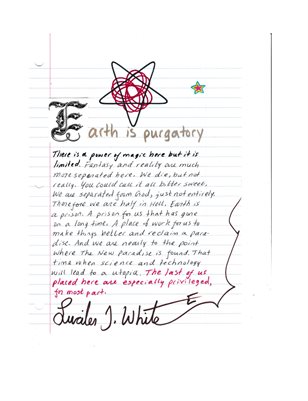 Earth is purgatory
There is a power of magic here but it is
limited. Fantasy and reality are much
more separated here. We die, but not
really. You could call it all bitter sweet.
We are separated from God, just not entirely.
Therefore we are half in Hell. Earth is
a prison. A prison for us that has gone
on a long time. A place of work for us to
make things better and reclaim a para-
dise. And we are nearly to the point
where The New Paradise is found. That
time when science and technology
will lead to a utopia. The last of us
placed here are especially privileged,
for most part.
J. White